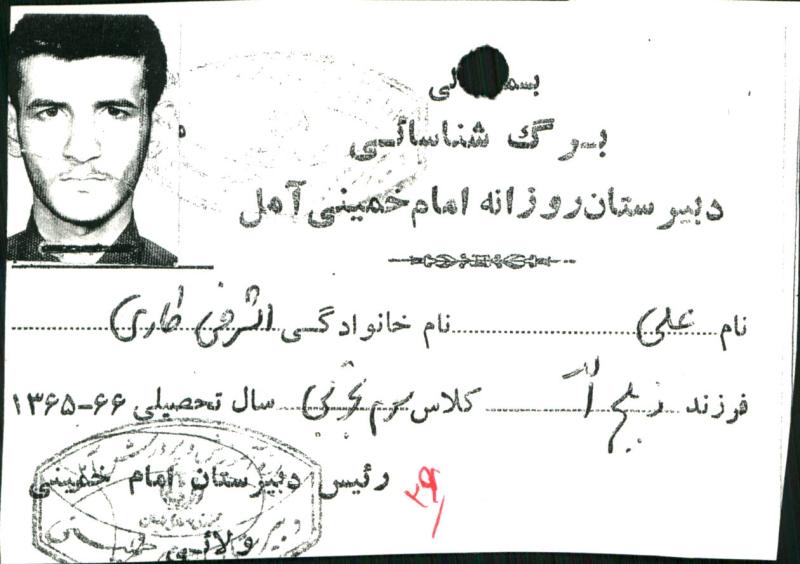 بسمه تعالی
بـرگ شناسائـی
دبیرستان روزانه امام خمینی آمل
نام علی نام خانوادگـی اشرفی طاری
فرزند ذبیح اله کلاس سال تحصیلی ۶۶-۱۳۶۵
رئیس دبیرستان امام خمینی
ولائـی
۲۹